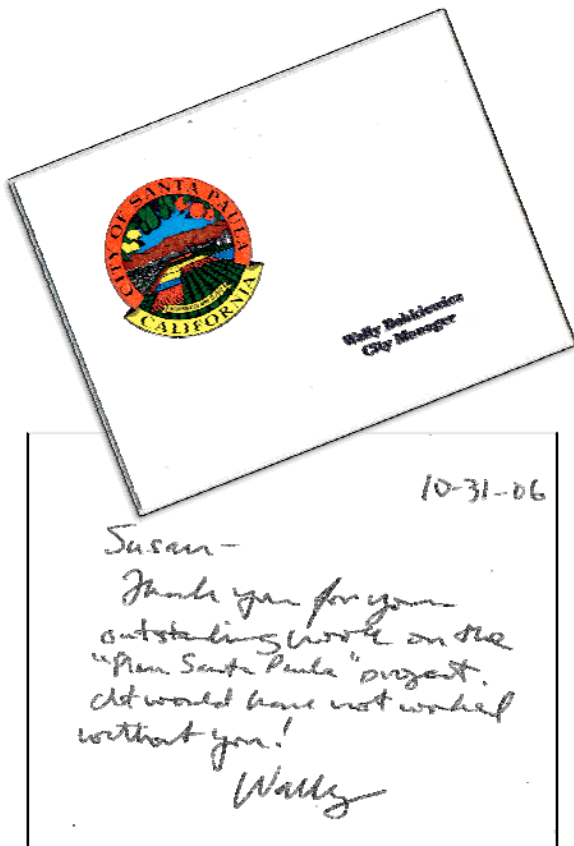 CITY OF SANTA PAULA
CALIFORNIA
Wally Bobkiewicz
City Manager
10-31-06
Susan-
Thank you for your
outstanding work on the
"Plan Santa Paula" project.
It would have not worked
without you!
Wally